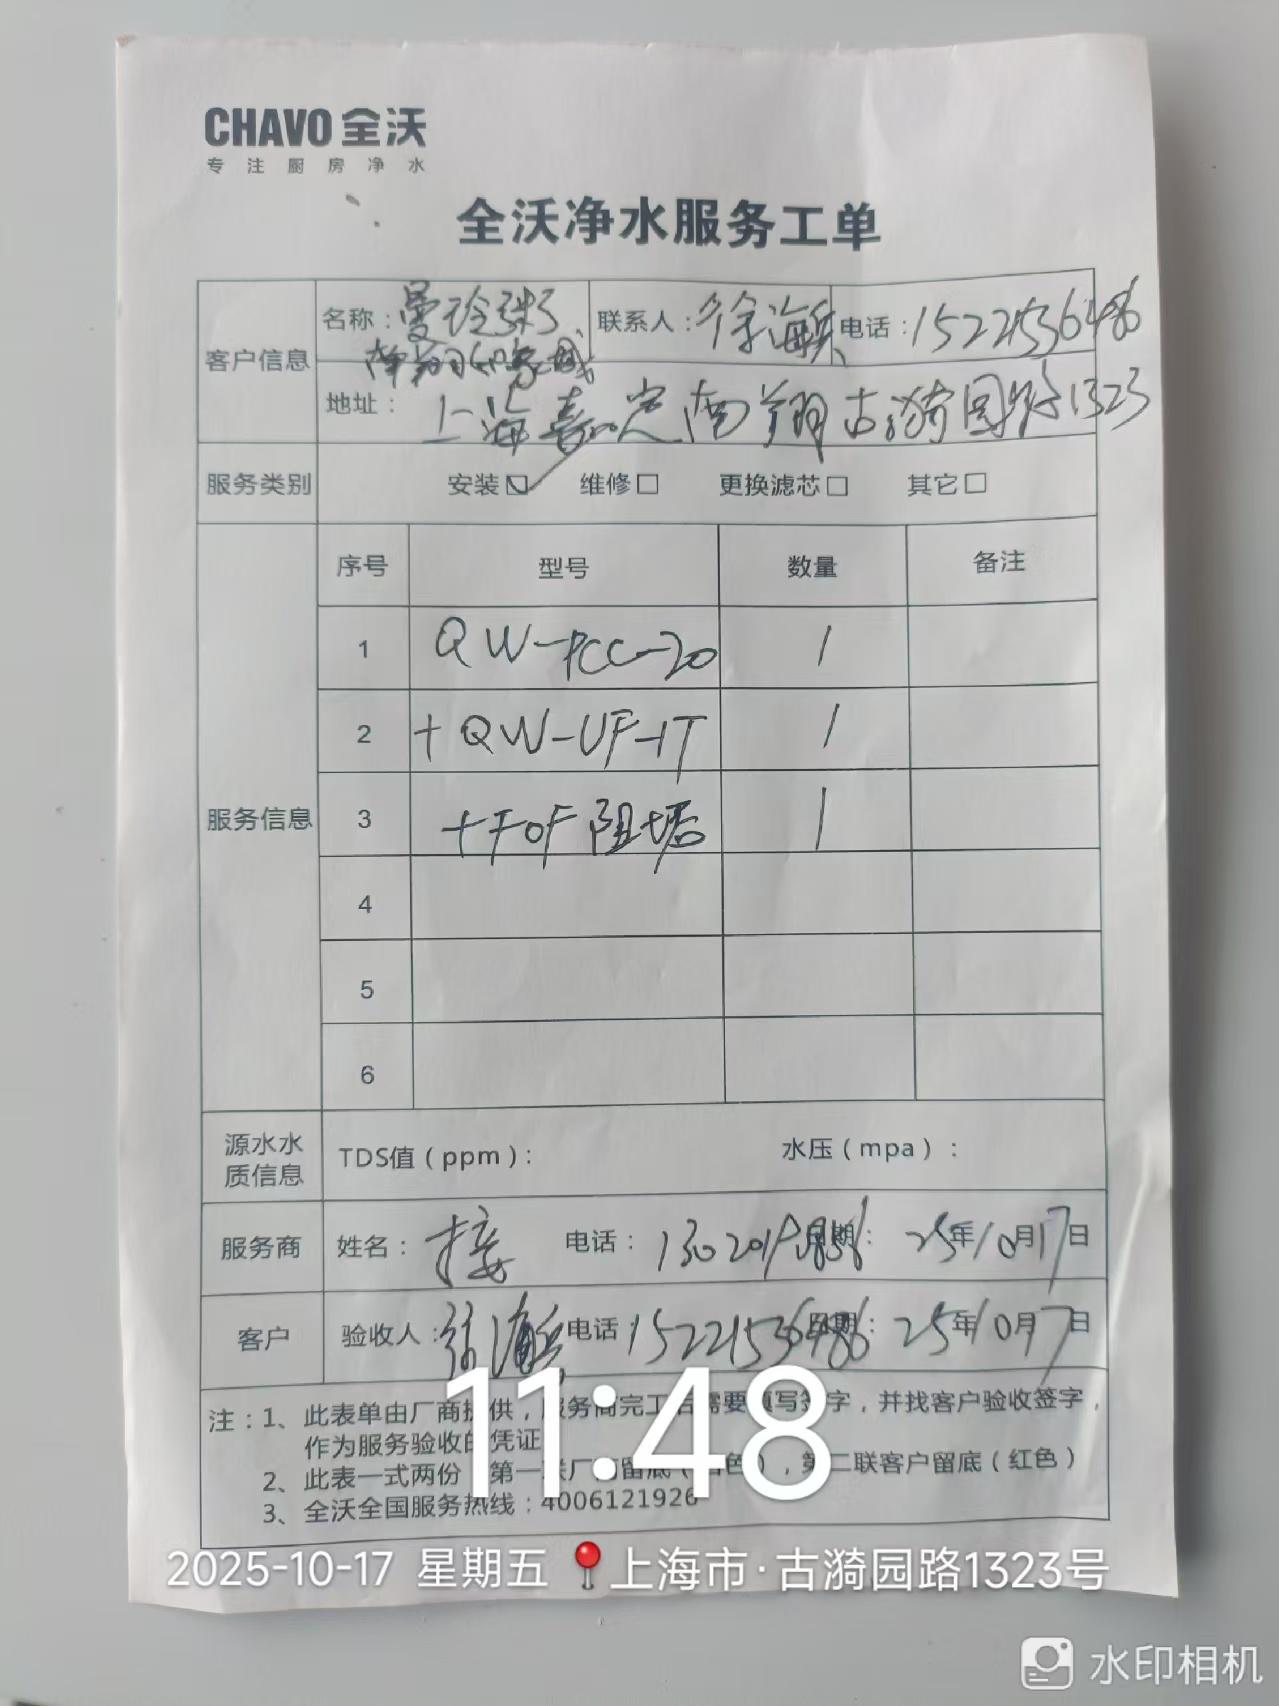 CHAVO 全沃
专注厨房净水
全沃净水服务工单
客户信息
名称：曼玲粥
南翔印象城
联系人：徐海
电话：15221536486
地址：上海嘉定南翔古漪园路1323
服务类别 安装☑ 维修□ 更换滤芯□ 其它□
服务信息
序号 型号 数量 备注
1 QW-PCC-20 1
2 +QW-UF-1T 1
3 +FOF 阻垢 1
4
5
6
源水水质信息 TDS值（ppm）： 水压（mpa）：
服务商 姓名：接 电话： 日期：25年10月17日
客户 验收人：徐海 电话 15221536486 日期：25年10月17日
注：1、此表单由厂商提供，服务商完工后需要填写签字，并找客户验收签字，
作为服务验收的凭证
2、此表一式两份 第一联厂商留底（白色），第二联客户留底（红色）
3、全沃全国服务热线：4006121926
11:48
2025-10-17 星期五 上海市·古漪园路1323号
水印相机